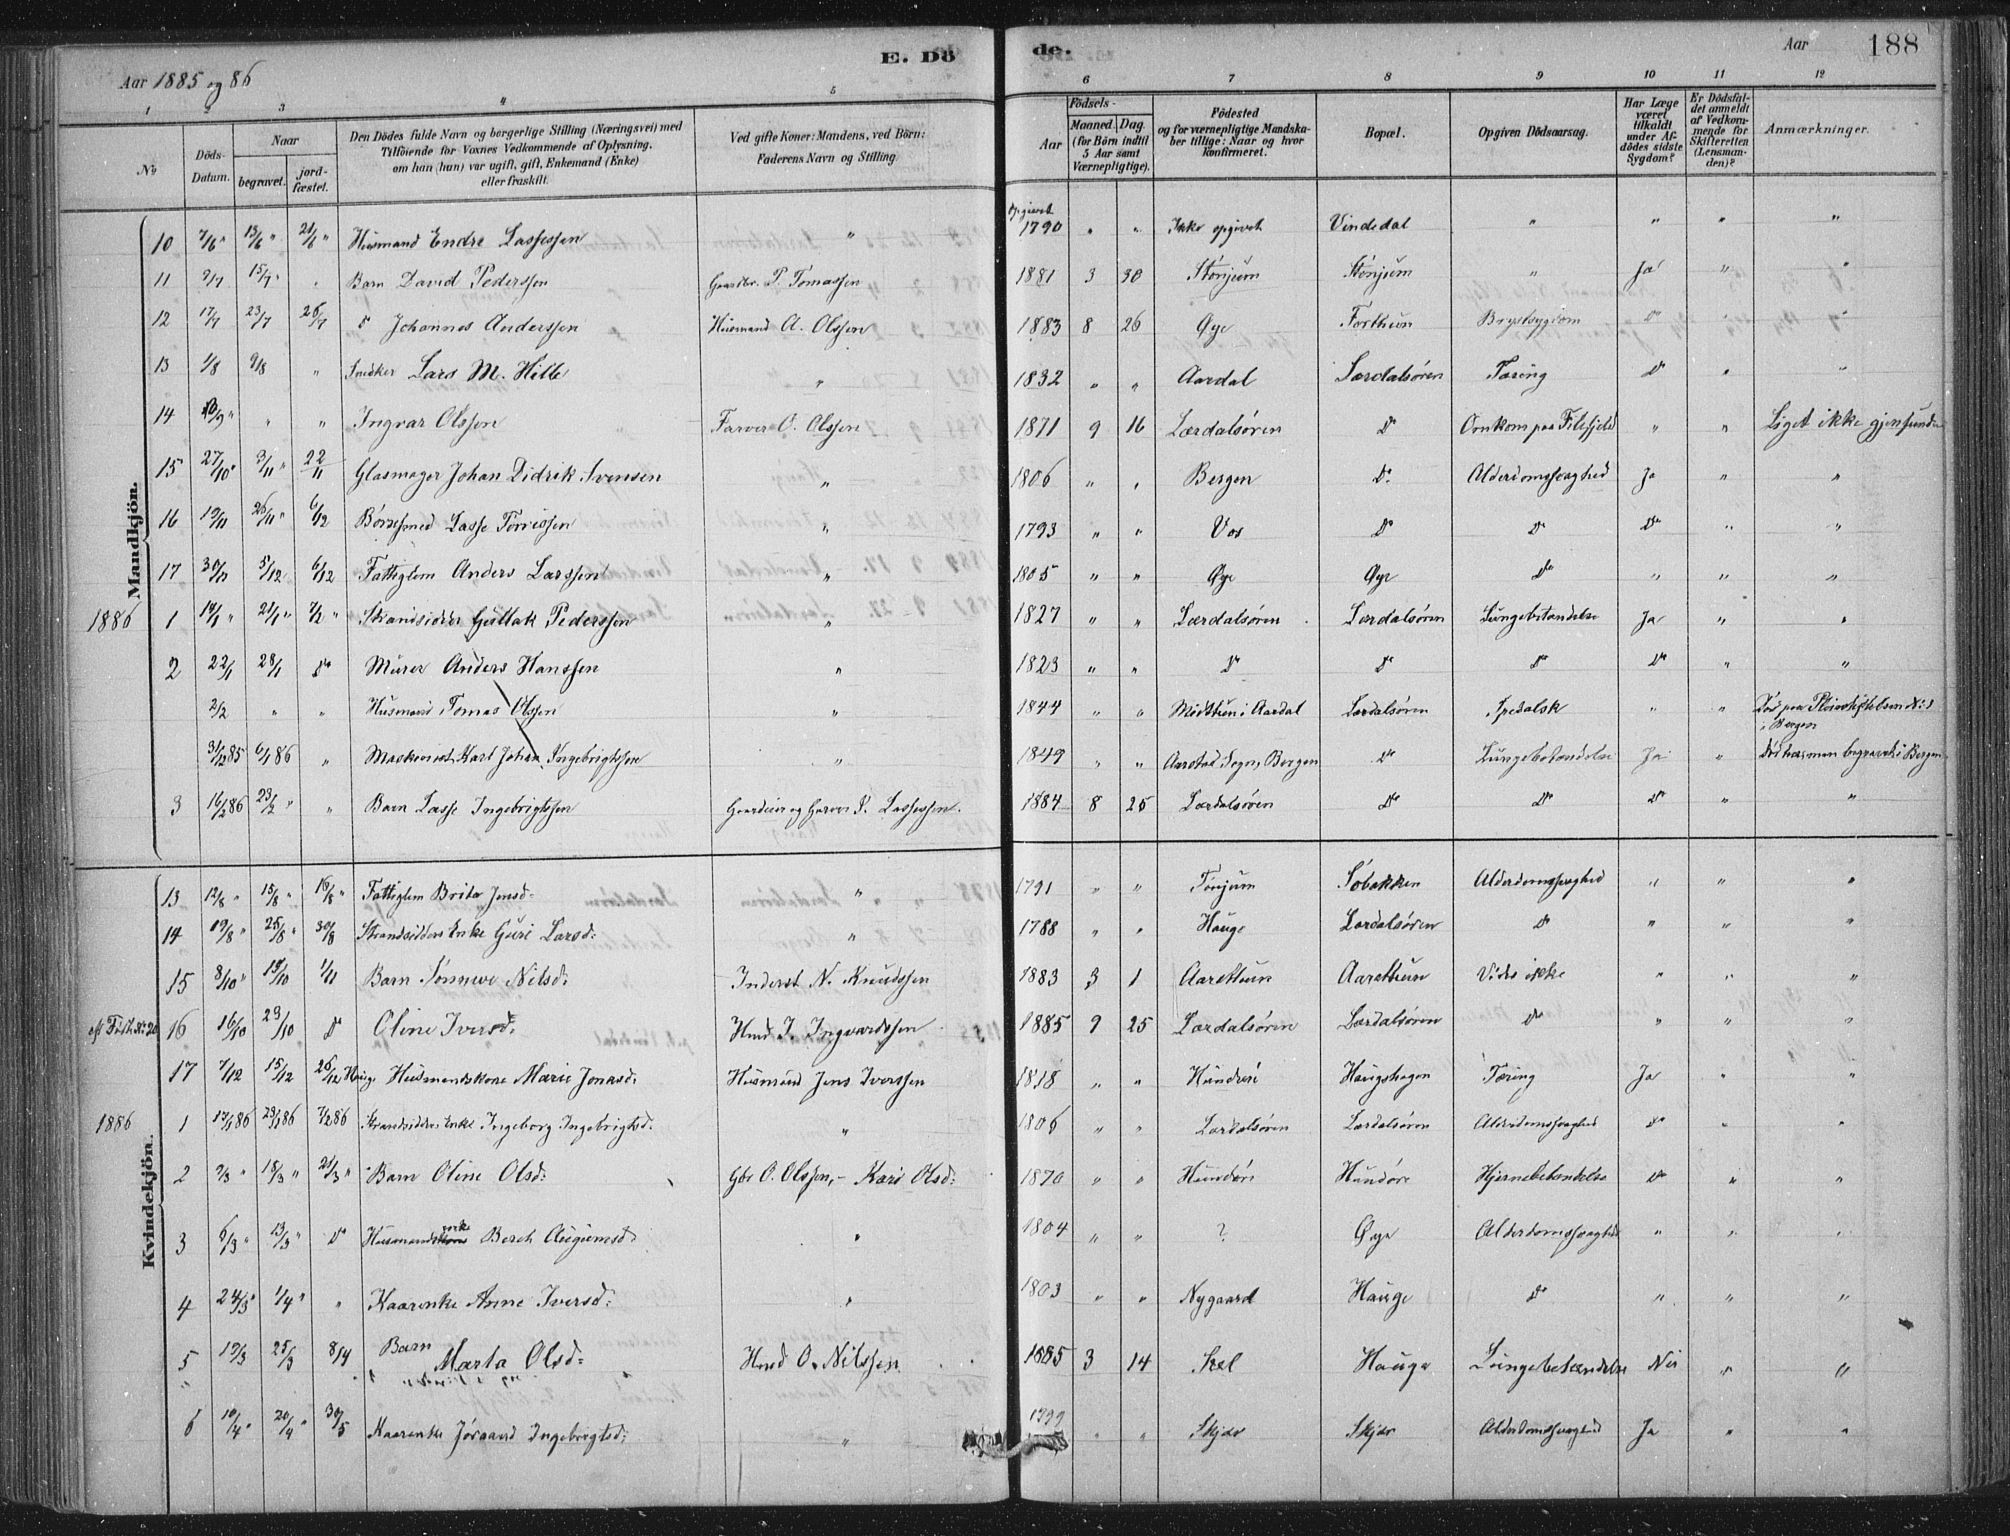 E. Dö
de.
Aar
188
Aar 1885 og 86
1 2 3 4 5
6 7 8 9 10 11 12
№
Döds-Datum.
Naar
begravet.
jord-fæstet.
Den Dödes fulde Navn og borgerlige Stilling (Næringsvei) med
Tilföiende for Voxnes Vedkommende af Oplysning,
om han (hun) var ugift, gift, Enkemand (Enke)
eller fraskilt.
Ved gifte Koner: Mandens, ved Börn:
Faderens Navn og Stilling.
Födsels-
Aar
Maaned. Dag.
(for Börn indtil
5 Aar samt
Værnepligtige).
Födested
og for værnepligtige Mandska-
ber tillige: Naar og hvor
konfirmeret.
Bopæl.
Opgiven Dödsaarsag.
Har Læge
været
tilkaldt
under Af-
dödes sidste
Sygdom?
Er Dödsfal-
det anmeldt
af Vedkom-
mende for
Skifteretten
(Lensman-
den)?
Anmærkninger.
Mandkjön.
10 7/6 " 13/6 " 21/6 " Husmand Endre Lassessen " opgivet 1790 " " Ikke opgivet Vindedal " " " "
11 9/7 15/7 " " Barn David Pederssen Gaardbr. P. Tomassen 1881 3 30 Stönjum Stönjum " Ja " "
12 17/7 23/7 26/7 do Johannes Anderssen Husmand A. Olssen 1883 8 26 Øye Forthun Brystsygdom do
13 1/8 9/8 " Snedker Lars M. Hille " 1832 " " Aardal Lærdalsören Tæring do " "
14 " " " Ingvar Olssen Farver O. Olssen 1871 9 16 Lærdalsören do Omkom paa Filefjeld " " Liget ikke gjenfunden
15 27/10 " 3/11 " 22/11 Glasmager Johan Didrik Svensen " 1806 " " Bergen do Alderdomssvaghed Ja " "
16 19/11 26/11 " 6/12 Børsesmed Lasse Torrissen " 1793 " " Vos do do do " "
17 30/11 5/12 6/12 Fattiglem Anders Larssen " 1805 " " Øye Øye do " " "
1886 1 14/1 " 21/1 " 7/2 " Strandsidder Guttak Pederssen " 1827 " " Lærdalsören Lærdalsören Lungebetændelse Ja " "
2 22/1 28/1 do Murer Anders Hanssen " 1823 " " do do do do " "
2/2 " " Husmand Tomas Olssen " 1844 " " Midthun i Aardal Lærdalsören Spedalsk " " Död paa Pleiestiftelsen № 1 i Bergen
31/12 85 6/1 86 " Maskinist Karl Johan Ingebrigtssen " 1849 " " Aarstad Sogn, Bergen do Lungebetændelse Ja " Död her, men begravet i Bergen
3 16/2 86 23/2 " " Barn Lasse Ingebrigtssen Gaardeier og Garver I. Lassessen. 1884 8 25 Lærdalsören do do do " "
Kvindekjön.
13 12/8 " 15/8 " 16/8 " Fattiglem Brita Jensd. " 1791 " " Tönjum Söbakken Alderdomssvaghed " " "
14 19/8 " 25/8 " 30/8 Strandsidders Enke Guri Larsd: " 1788 " " Hauge Lærdalsören do " " "
15 8/10 " 19/10 1/11 Barn Sönneve Nilsd: Inderst N. Knudssen 1883 3 1 Aarethun Aarethun Vides ikke " " "
16 16/10 23/10 do Oline Iversd: Hmd I. Ingvardssen 1885 9 25 Lærdalsören Lærdalsören do " " "
17 7/12 15/12 26/12 Hauge Husmandskone Marie Jonasd: Husmand Jens Iverssen 1818 " " Hundöri Haugshagen Tæring Ja " "
1886 1 17/1 86 23/1 86 7/2 86 Strandsidders Enke Ingeborg Ingebrigtsd. " 1806 " " Lærdalsören Lærdalsören Alderdomssvaghed do " "
2 9/3 " 18/3 " 21/3 " Barn Oline Olsd: Gbr O. Olssen, - Kari Olsd: 1870 " " Hundöri Hundöri Hjernebetændelse do " "
3 6/3 " 13/3 " do Husmandsenke Beret Augunsd: " 1804 " " ? Øye Alderdomssvaghed " " "
4 24/3 " 1/4 " " Kaarenke Anne Iversd: " 1803 " " Nygaard Hauge do " " "
5 19/3 25/3 8/4 Barn Marta Olsd: Hmd O. Nilssen 1885 3 14 Hauge Lungebetændelse Nei " "
6 10/4 " 20/4 " 30/5 Kaarenke Ingebrigtsd: " 1799 " " Skjær Skjær Alderdomssvaghed Ja " "